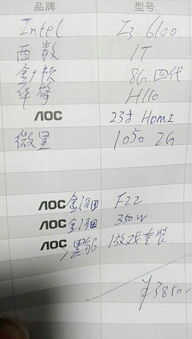 品牌 型号
Intel I3 6100
西数 1T
金松 8G 四代
华擎 H110
AOC 23寸 HDMI
微星 1050 2G
AOC 金河田 F22
AOC 金河田 350W
AOC 黑爵 游戏套装
￥3850